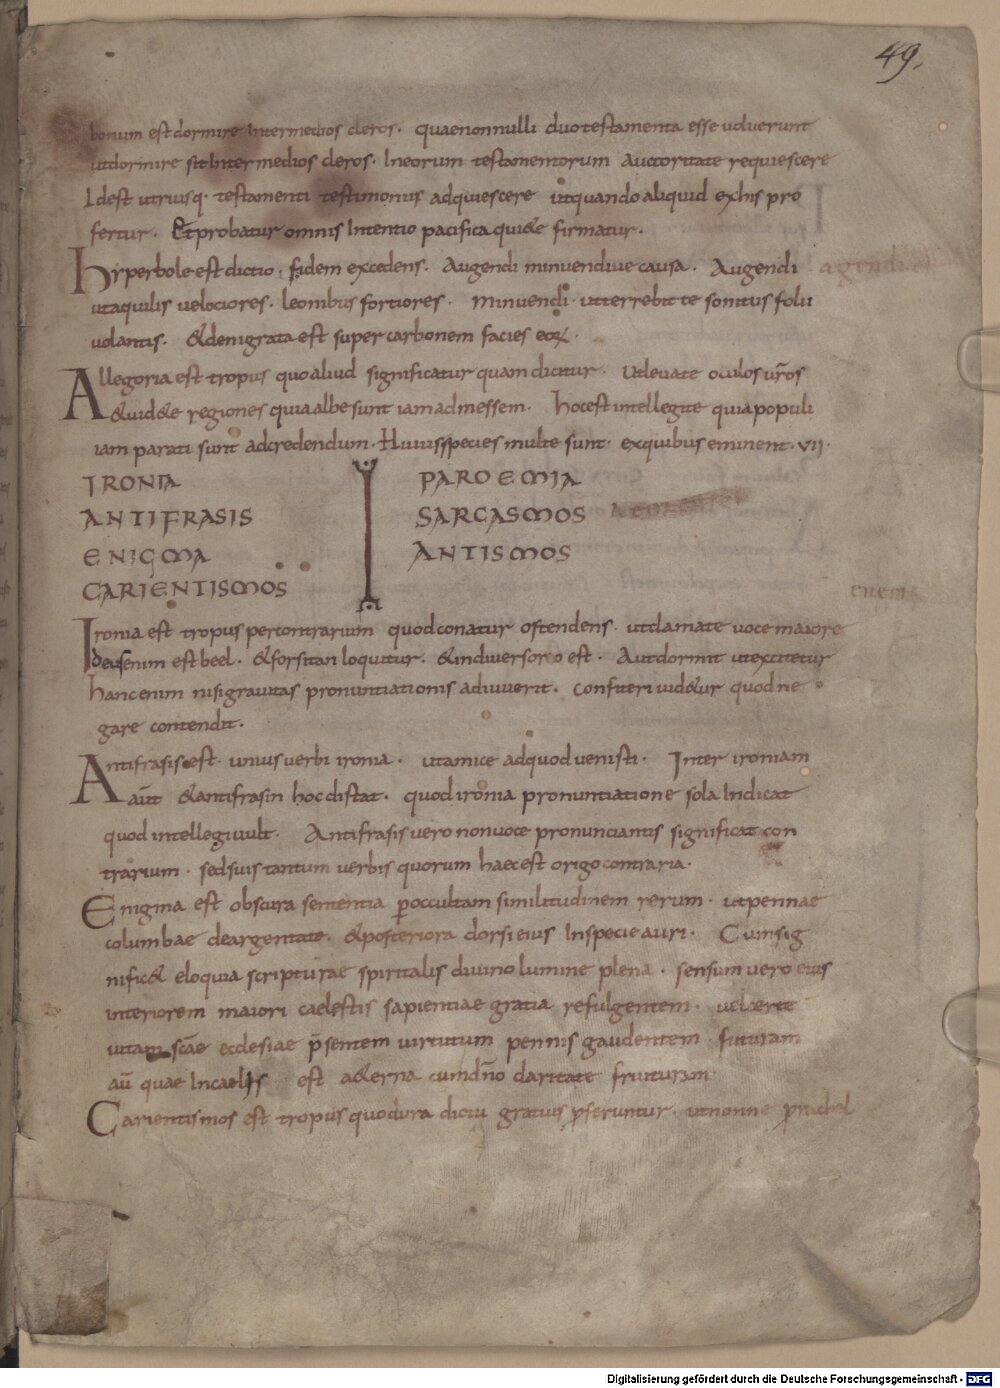 49.
bonum est dormire Inter medios cleros. quae nonnulli duo testamenta esse uoluerunt
ut dormire sit Inter medios cleros. In eorum testamentorum auctoritate requiescere
Idest utriusq. testamenti testimoniis adquiescere ut quando aliquid ex his pro
fertur. Et probatur omnis Intentio pacifica qui&e firmatur.
Hyperbole est dictio; fidem excedens. Augendi minuendiue causa. Augendi
ut aquilis uelociores. leonibus fortiores. minuendi. ut terrebit te sonitus folii
uolantis. &denigrata est super carbonem facies eoꝝ.
Allegoria est tropus quo aliud significatur quam dicitur. ut leuate oculos ur̄os
&uid&e regiones quia albe sunt iam ad messem. hoc est intellegite quia populi
iam parati sunt ad credendum. Huius species multe sunt. ex quibus eminent. vii.
IRONIA
ANTIFRASIS
ENIGMA
CARIENTISMOS
PAROEMIA
SARCASMOS
ANTISMOS
Ironia est tropus per contrarium quod conatur ostendens. ut clamate uoce maiore
deus enim est beel. &forsitan loquitur. &in diuersorio est. Aut dormit ut excitetur
hanc enim nisi grauitas pronuntiationis adiuuerit. confiteri uid&ur quod ne
gare contendit.
Antifrasis est. unius uerbi ironia. ut amice ad quod uenisti. Inter ironiam
aūt &antifrasin hoc distat. quod ironia pronuntiatione sola Indicat
quod intellegi uult. Antifrasis uero non uoce pronunciantis significat con
trarium. sed suis tantum uerbis quorum haec est origo contraria.
Enigma est obscura sententia ꝑ occultam similitudinem rerum. ut pennae
columbae deargentate. &posteriora dorsi eius In specie auri. Cum sig
nific& eloquia scripturae spiritalis diuino lumine plena. sensum uero eius
interiorem maiori caelestis sapientiae gratia refulgentem. uel certe
uitam scāe ecclesiae p̄sentem uirtutum pennis gaudentem. futuram
aū quae In caelis est a&erna cum dn̄o claritate fruituram
Carientismos est tropus quo dura dictu gratius ꝓferuntur. ut nonne
Digitalisierung gefördert durch die Deutsche Forschungsgemeinschaft - DFG